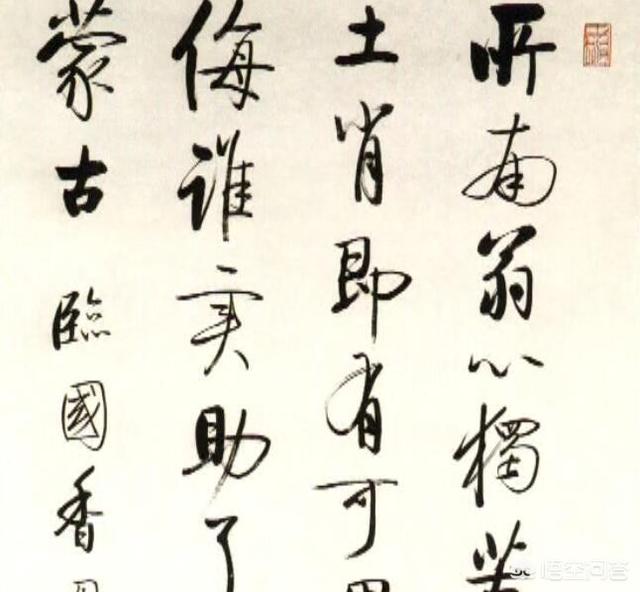 所南翁心獨苦
土肖即有可
侮誰实助了
蒙古 臨國香
悟空问答